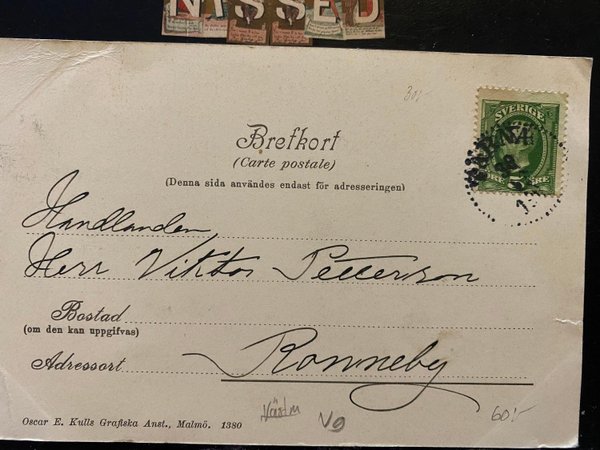 NISSED
30:-
SVERIGE
Brefkort
(Carte postale)
(Denna sida användes endast för adresseringen)
Handlanden
Herr Viktor Petterson
Bostad
(om den kan uppgifvas)
Adressort Ronneby
Oscar E. Kulls Grafiska Anst., Malmö. 1380
V9
60:-